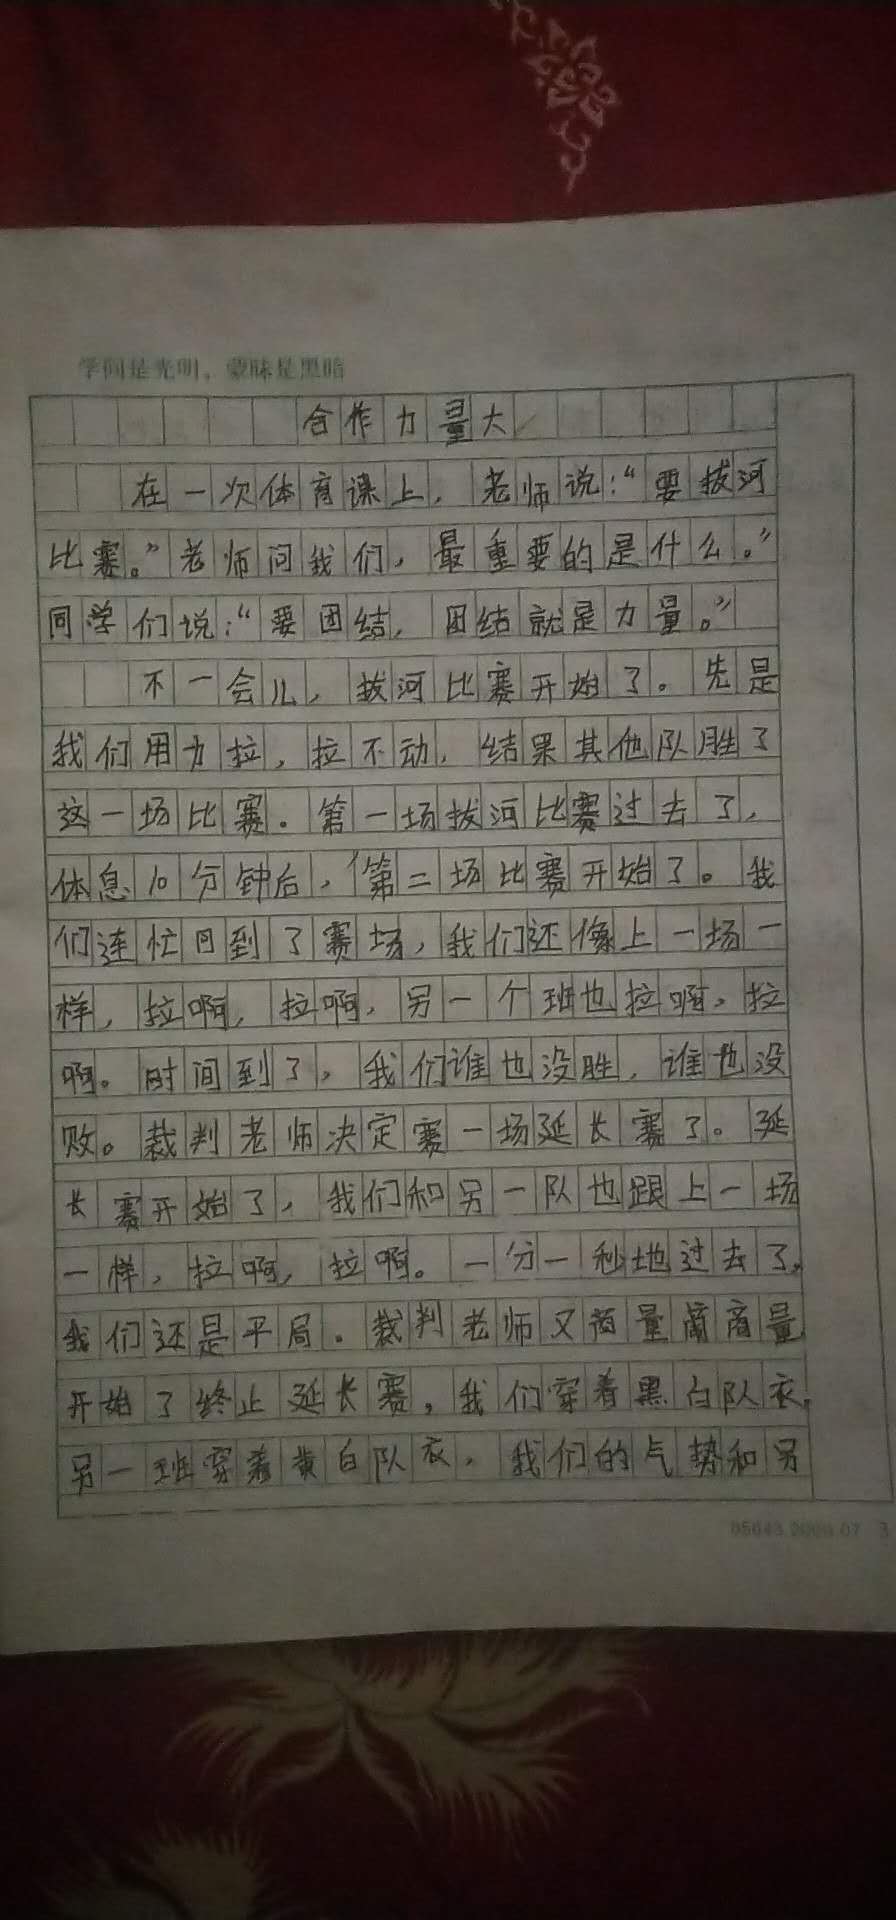 学问是光明，蒙昧是黑暗
合作力量大
在一次体育课上，老师说：“要拔河
比赛。”老师问我们，最重要的是什么。”
同学们说：“要团结，团结就是力量。”
不一会儿，拔河比赛开始了。先是
我们用力拉，拉不动，结果其他队胜了
这一场比赛。第一场拔河比赛过去了，
体息10分钟后，第二场比赛开始了。我
们连忙回到了赛场，我们还像上一场一
样，拉啊，拉啊，另一个班也拉啊，拉
啊。时间到了，我们谁也没胜，谁也没
败。裁判老师决定赛一场延长赛了。延
长赛开始了，我们和另一队也跟上一场
一样，拉啊，拉啊。一分一秒地过去了，
我们还是平局。裁判老师又商量商量
开始了终止延长赛，我们穿着黑白队衣，
另一班穿着黄白队衣，我们的气势和另
3